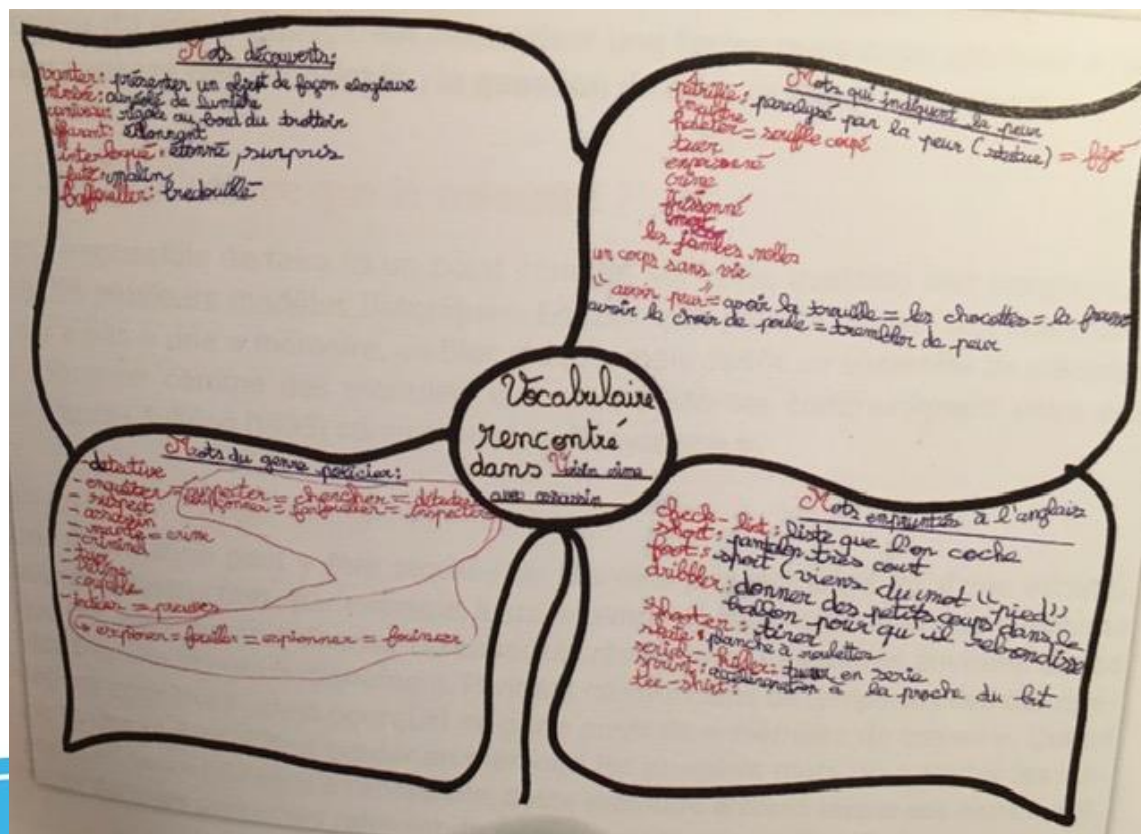 Mots découverts:
vanter: présenter un objet de façon elogieuse
auréole de lumière
caniveau: rigole au bord du trottoir
étonnant
interloqué: étonné, surpris
futé: malin
baffouiller: bredouillé
Mots qui indiquent la peur
pétrifié: paralysé par la peur (statue) = figé
haleter = souffle coupé
tuer
empoisonné
crime
frissonné
les jambes molles
un corps sans vie
"avoir peur" = avoir la trouille = les chocottes = la frousse
avoir la chair de poule = trembler de peur
Vocabulaire
rencontré
dans Voisin aime
avec assassin
Mots du genre policier:
- détective
- enquêter = inspecter = chercher = détecter
= espionner = farfouiller = inspecter
- suspect
- assassin
- meurtre = crime
- criminel
- tuer
- coupable
- indices = preuves
→ espionner = fouiller = espionner = fouiner
Mots empruntés à l'anglais
check-list: liste que l'on coche
short: pantalon très court
foot: sport (viens du mot "pied")
dribbler: donner des petits coups dans le
ballon pour qu'il rebondisse
shooter: tirer
skate: planche à roulettes
serial-killer: tueur en serie
sprint: accélération à la proche du but
tee-shirt: